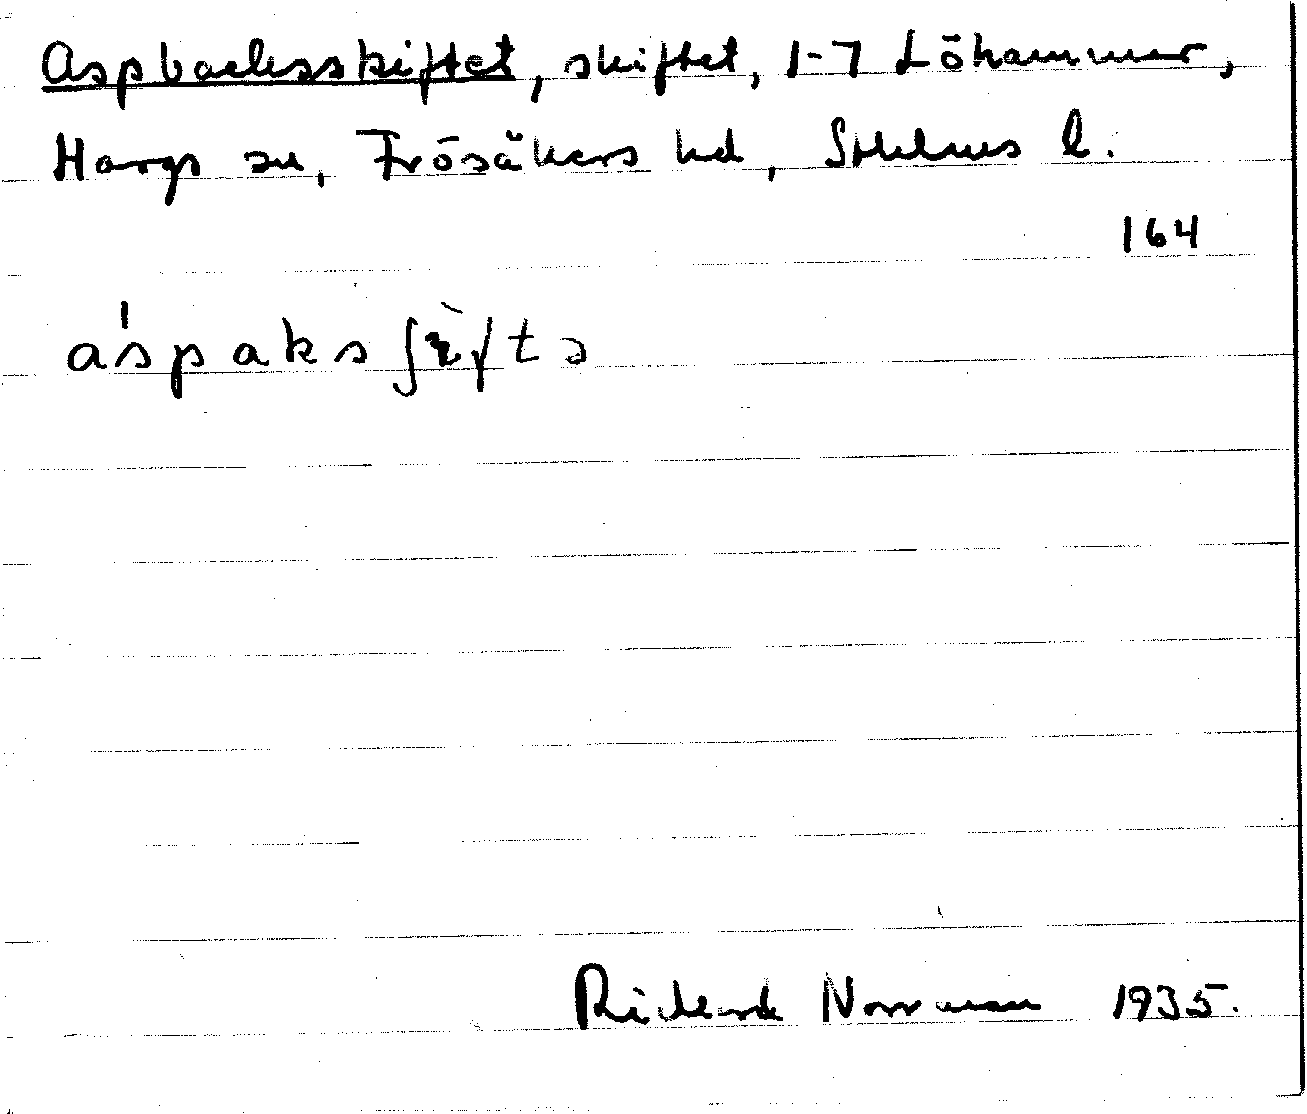 Aspbacksskiftet, skiftet, 1-7 Löhammar,
Hargs sn, Frösåkers hd, Sthlms l.
164
a'spaksʃìftə
Richard Norrman 1935.